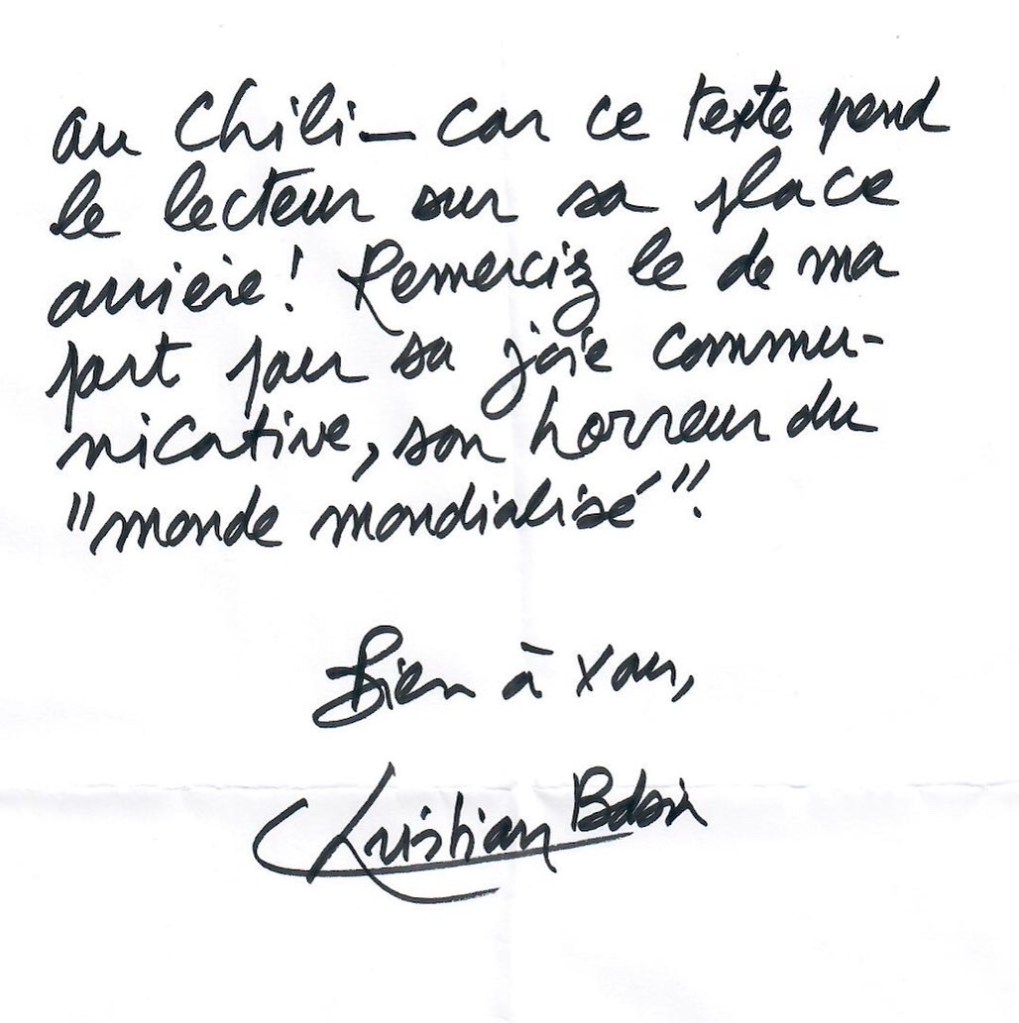 au Chili – car ce texte prend
le lecteur sur sa place
arrière! Remerciez le de ma
part pour sa joie commu-
nicative, son horreur du
"monde mondialisé".
Bien à vous,
Christian Bobin